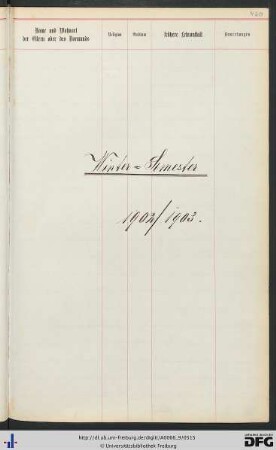 Name und Wohnort
der Eltern oder des Vormunds
frühere Lehranstalt
Bemerkungen
Winter=Semester
1902/1903.
http://dl.ub.uni-freiburg.de/diglit/A0066_9/0515
© Universitätsbibliothek Freiburg
gefördert durch die
DFG